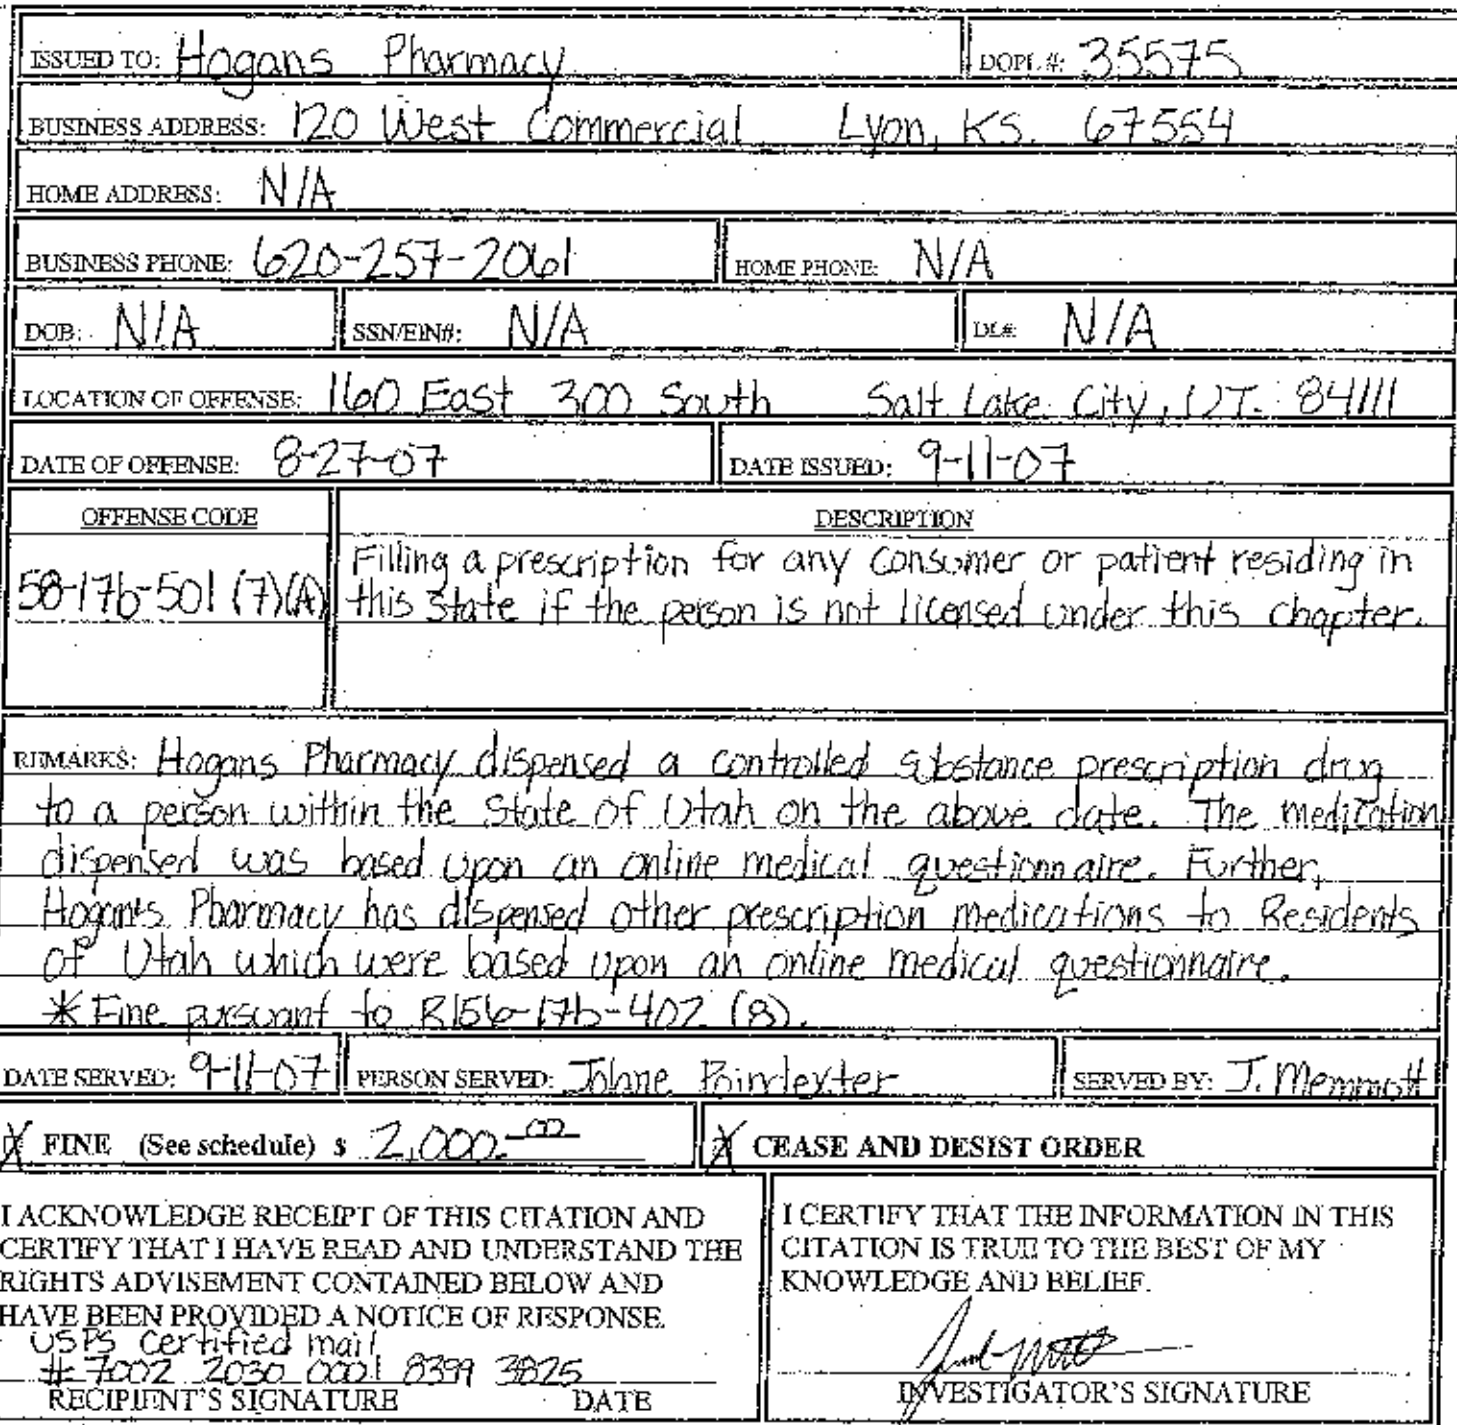 ISSUED TO: Hogans Pharmacy DOPL #: 35575
BUSINESS ADDRESS: 120 West Commercial Lyon, KS. 67554
HOME ADDRESS: N/A
BUSINESS PHONE: 620-257-2061 HOME PHONE: N/A
DOB: N/A SSN/EIN#: N/A DL#: N/A
LOCATION OF OFFENSE: 160 East 300 South Salt Lake City, UT. 84111
DATE OF OFFENSE: 8-27-07 DATE ISSUED: 9-11-07
OFFENSE CODE DESCRIPTION
58-17b-501 (7)(A) Filling a prescription for any consumer or patient residing in
this State if the person is not licensed under this chapter.
REMARKS: Hogans Pharmacy dispensed a controlled substance prescription drug
to a person within the State of Utah on the above date. The medication
dispensed was based upon an online medical questionnaire. Further,
Hogan's Pharmacy has dispensed other prescription medications to Residents
of Utah which were based upon an online medical questionnaire.
* Fine pursuant to R156-17b-402 (8).
DATE SERVED: 9-11-07 PERSON SERVED: Johne Poindexter SERVED BY: J. Memmott
X FINE (See schedule) $ 2,000.00 X CEASE AND DESIST ORDER
I ACKNOWLEDGE RECEIPT OF THIS CITATION AND
CERTIFY THAT I HAVE READ AND UNDERSTAND THE
RIGHTS ADVISEMENT CONTAINED BELOW AND
HAVE BEEN PROVIDED A NOTICE OF RESPONSE.
USPS certified mail
# 7002 2030 0001 8399 3825
RECIPIENT'S SIGNATURE DATE
I CERTIFY THAT THE INFORMATION IN THIS
CITATION IS TRUE TO THE BEST OF MY
KNOWLEDGE AND BELIEF.
INVESTIGATOR'S SIGNATURE